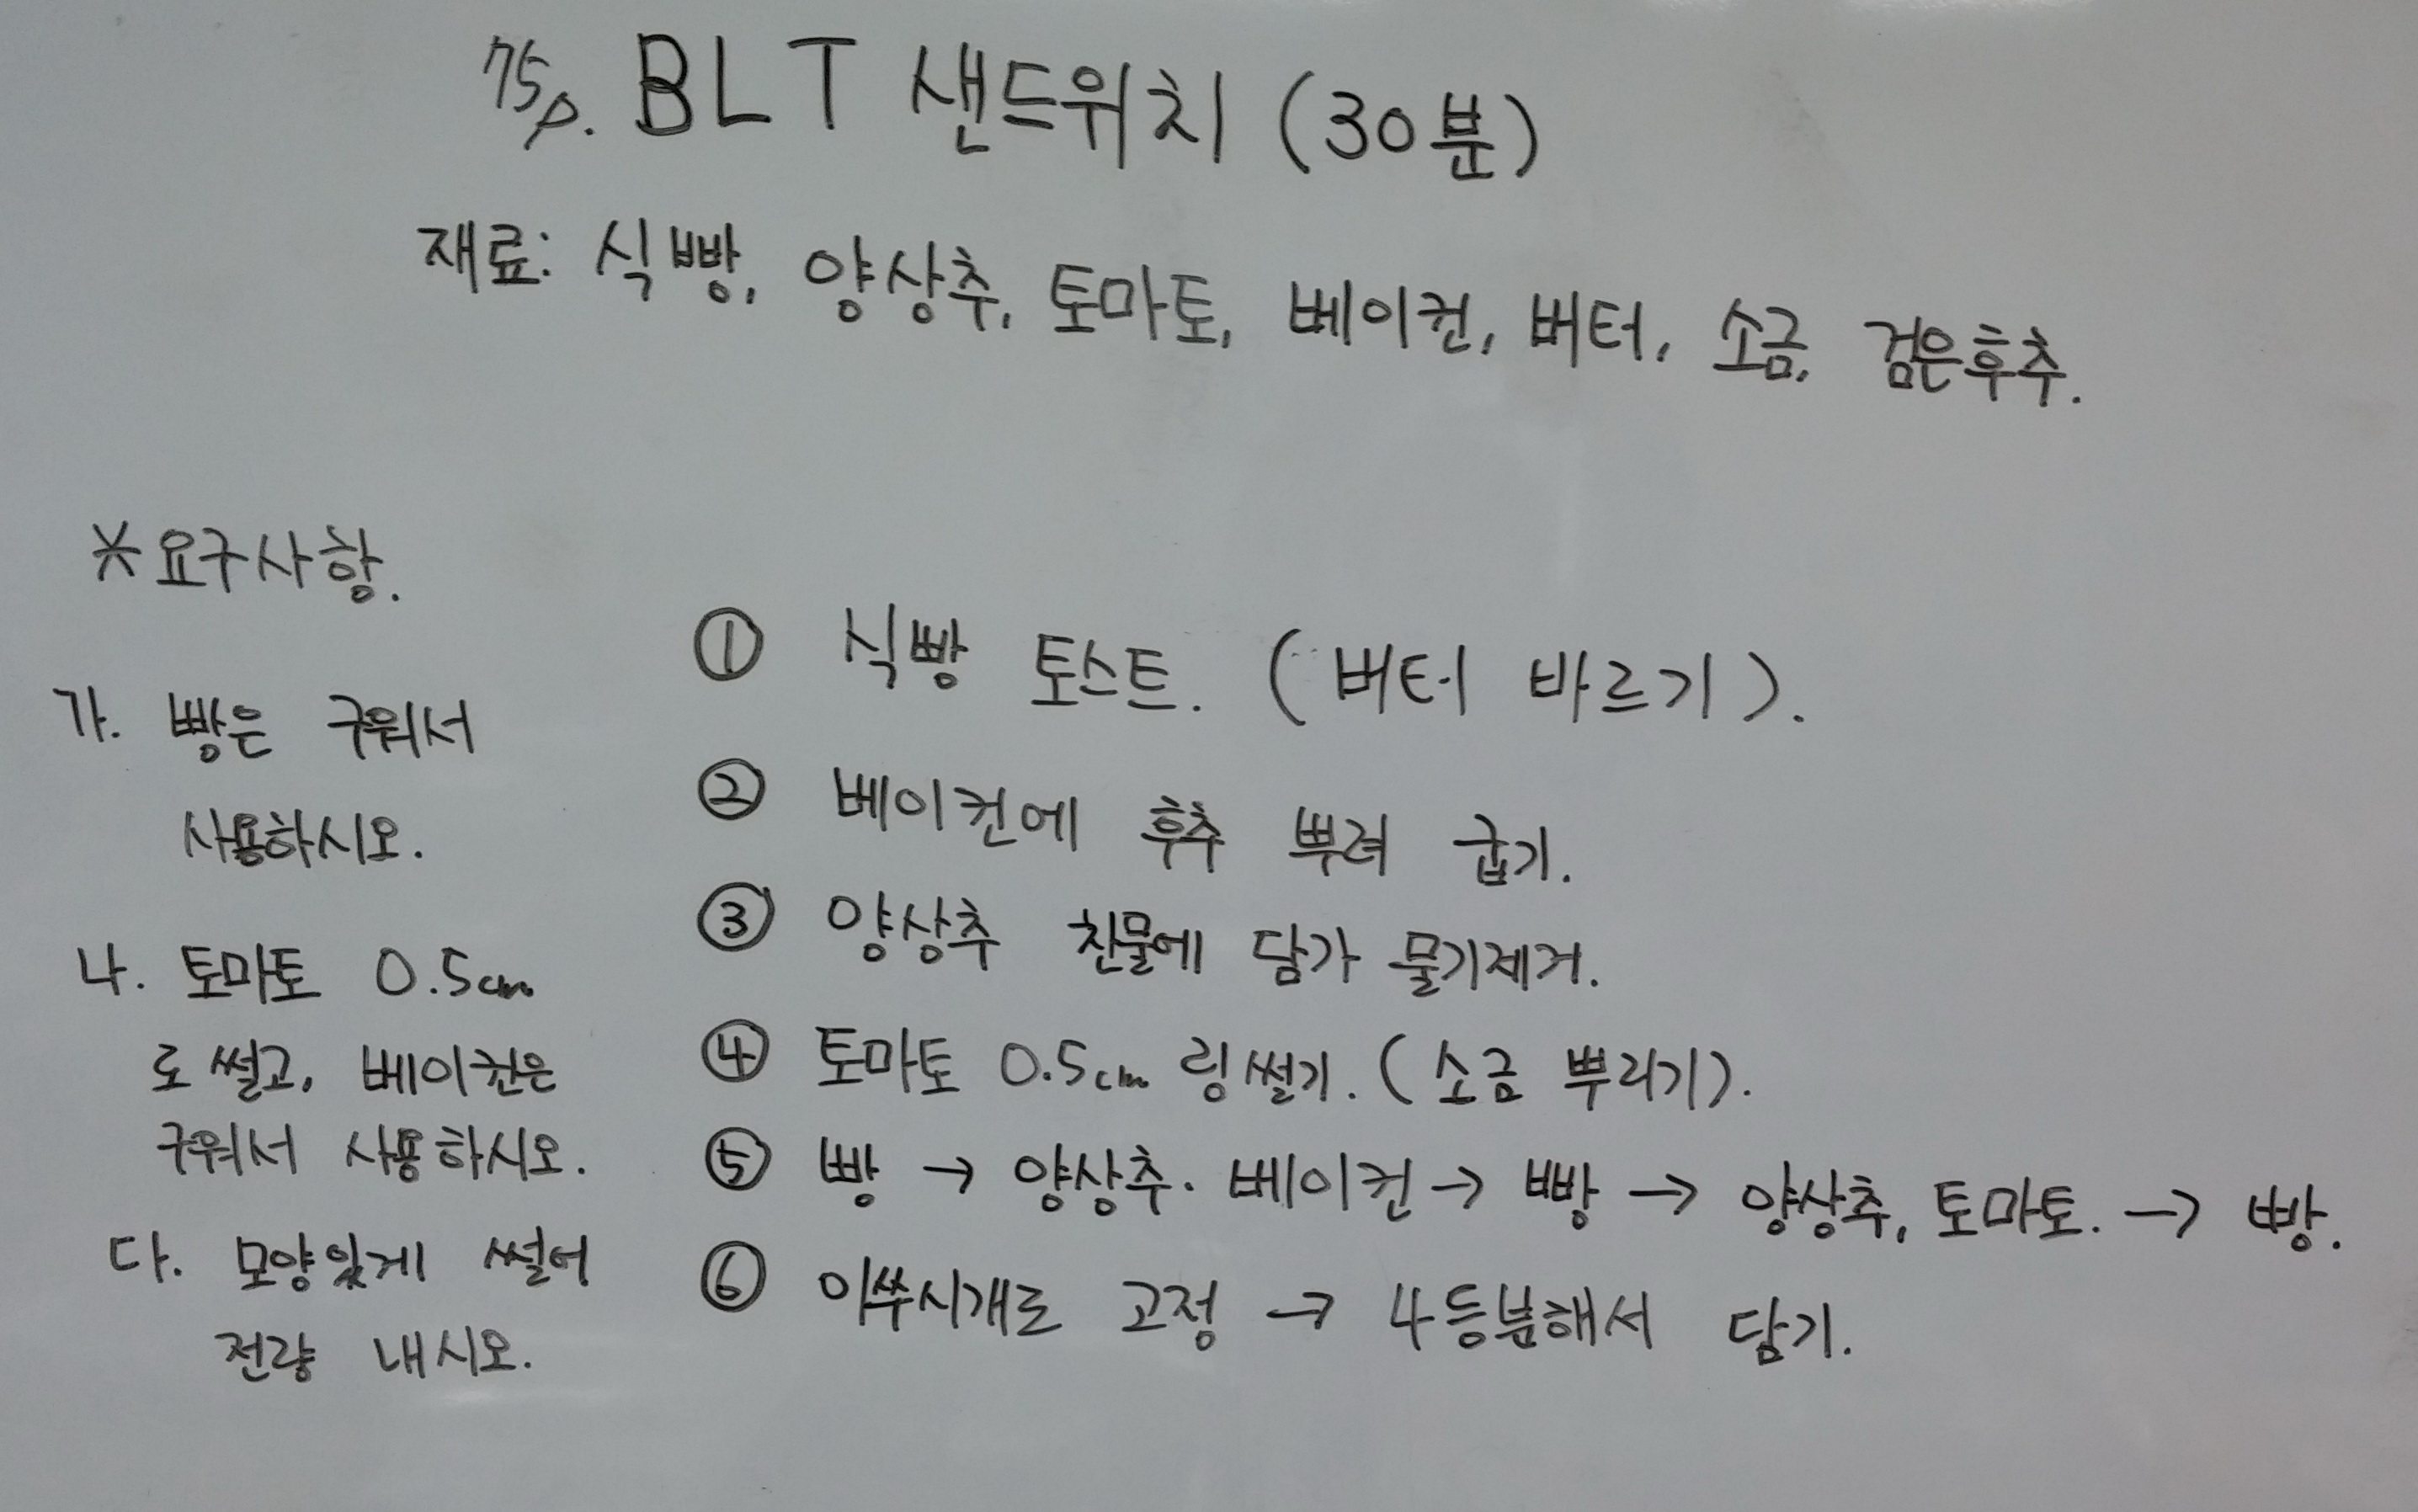 75p. BLT 샌드위치 (30분)
재료: 식빵, 양상추, 토마토, 베이컨, 버터, 소금, 검은후추.
※요구사항.
가. 빵은 구워서
사용하시오.
나. 토마토 0.5cm
로 썰고, 베이컨은
구워서 사용하시오.
다. 모양있게 썰어
전량 내시오.
① 식빵 토스트. (버터 바르기).
② 베이컨에 후추 뿌려 굽기.
③ 양상추 찬물에 담가 물기제거.
④ 토마토 0.5cm 링썰기. (소금 뿌리기).
⑤ 빵 → 양상추. 베이컨 → 빵 → 양상추, 토마토. → 빵.
⑥ 이쑤시개로 고정 → 4등분해서 담기.